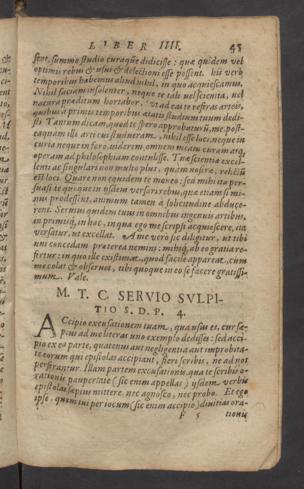 LIBER IIII. 45
sent, summo studio curaq́ue didicisse: quæ quidem vel
optimis rebus & usui & delectioni esse possent. his verò
temporibus habemus aliud nihil, in quo acquiescamus.
Nihil faciam insolenter, neque te tali vel scientia, vel
natura præditum hortabor, vt ad eas te refferas arteis,
quibus à primis temporibus ætatis studium tuum dedi-
sti. Tantum dicam, quod te spero approbaturum, me, post-
eaquam illi arti cui studueram, nihil esse loci, neque in
curia neque in foro viderem, omnem meam curam atq́;
operam ad philosophiam contulisse. Tuæ scientiæ excel-
lenti ac singulari non multo plus, quàm nostræ, relictum
est loci. Quare non equidem te moneo: sed mihi ita per-
suasi te quoque in ijsdem versari rebus, quæ etiam si mi-
nus prodessent, animum tamen à solicitudine abduce-
rent. Seruius quidem tuus in omnibus ingenuis artibus,
in primisq́; in hac, in qua ego me scripsi acquiescere, ita
versatur, vt excellat. A me verò sic diligitur, vt tibi
vni concedam præterea nemini: mihiq́; ab eo gratia re-
fertur: in quo ille existimat, quod facile appareat, cum
me colat & obseruet, tibi quoque in eo se facere gratissi-
mum. Vale.
M. T. C. SERVIO SVLPI-
TIO S. D. P. 4.
ACcipio excusationem tuam, qua usus es, cur sæ-
pius ad me literas uno exemplo dedisses: sed acci-
pio ex ea parte, quatenus aut negligentia aut improbita-
te eorum qui epistolas accipiant, fieri scribis, ne ad nos
perferantur. Illam partem excusationis, qua te scribis o-
rationis paupertate (sic enim appellas) ijsdem verbis
epistolas sæpius mittere, nec agnosco, nec probo. Et ego
ipse, quem tu per iocum (sic enim accipio) diuitias ora-
F 5 tionis